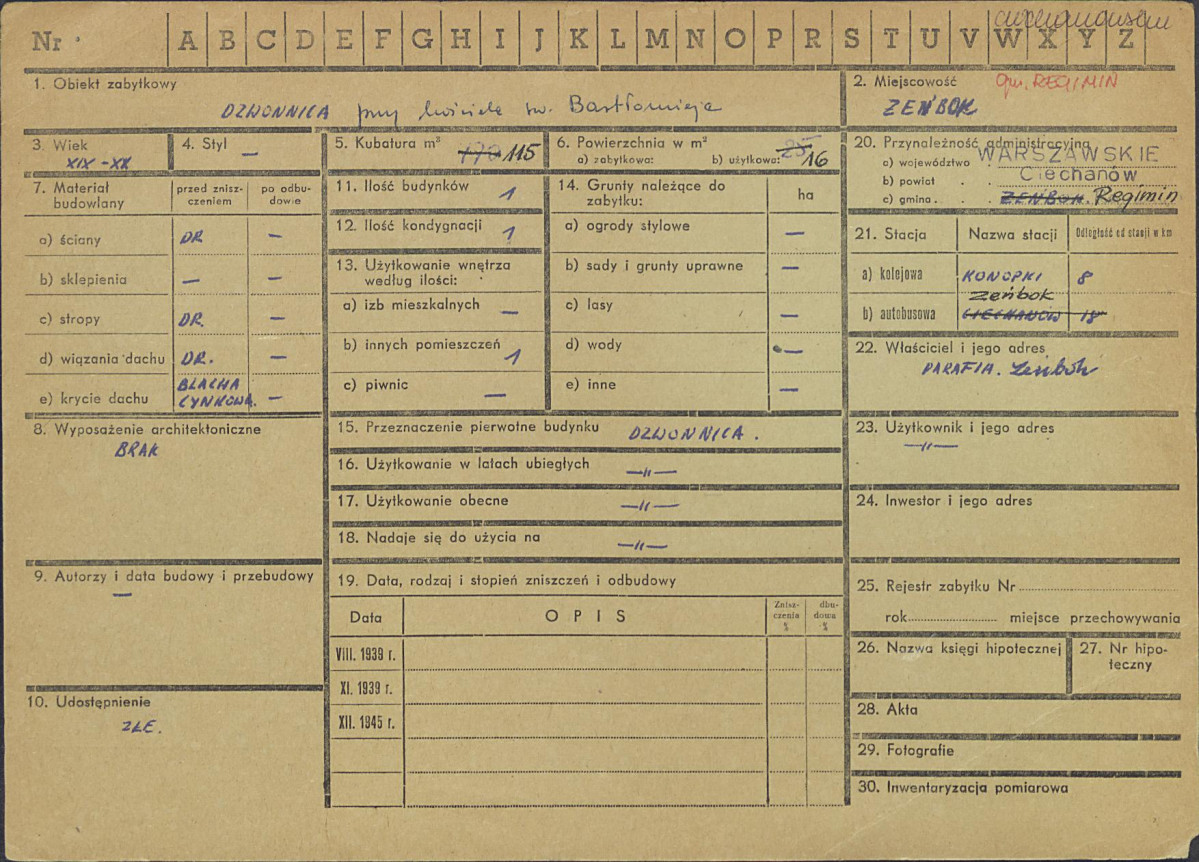 Nr
A B C D E F G H I J K L M N O P R S T U V W X Y Z
1. Obiekt zabytkowy
DZWONNICA przy kościele św. Bartłomieja
2. Miejscowość
gm. REGIMIN
ZEŃBOK
3. Wiek
XIX - XX
4. Styl
—
5. Kubatura m³
115
6. Powierzchnia w m²
a) zabytkowa: b) użytkowa: 25 16
20. Przynależność administracyjna
a) województwo WARSZAWSKIE
b) powiat . . Ciechanów
c) gmina . . ZEŃBOK Regimin
7. Materiał budowlany
przed zniszczeniem
po odbudowie
a) ściany DR. —
b) sklepienia — —
c) stropy DR. —
d) wiązania dachu DR. —
e) krycie dachu BLACHA CYNKOWA. —
8. Wyposażenie architektoniczne
BRAK
9. Autorzy i data budowy i przebudowy
—
10. Udostępnienie
ZŁE.
11. Ilość budynków 1
12. Ilość kondygnacji 1
13. Użytkowanie wnętrza
według ilości:
a) izb mieszkalnych —
b) innych pomieszczeń 1
c) piwnic —
14. Grunty należące do
zabytku:
ha
a) ogrody stylowe —
b) sady i grunty uprawne —
c) lasy —
d) wody —
e) inne —
15. Przeznaczenie pierwotne budynku DZWONNICA.
16. Użytkowanie w latach ubiegłych —"—
17. Użytkowanie obecne —"—
18. Nadaje się do użycia na —"—
19. Data, rodzaj i stopień zniszczeń i odbudowy
Data OPIS Zniszczenia % dbudowa %
VIII. 1939 r.
XI. 1939 r.
XII. 1945 r.
21. Stacja Nazwa stacji Odległość od stacji w km
a) kolejowa KONOPKI 8
Zeńbok
b) autobusowa CIECHANÓW 18
22. Właściciel i jego adres
PARAFIA. Zeńbok
23. Użytkownik i jego adres
—"—
24. Inwestor i jego adres
25. Rejestr zabytku Nr
rok miejsce przechowywania
26. Nazwa księgi hipotecznej
27. Nr hipoteczny
28. Akta
29. Fotografie
30. Inwentaryzacja pomiarowa